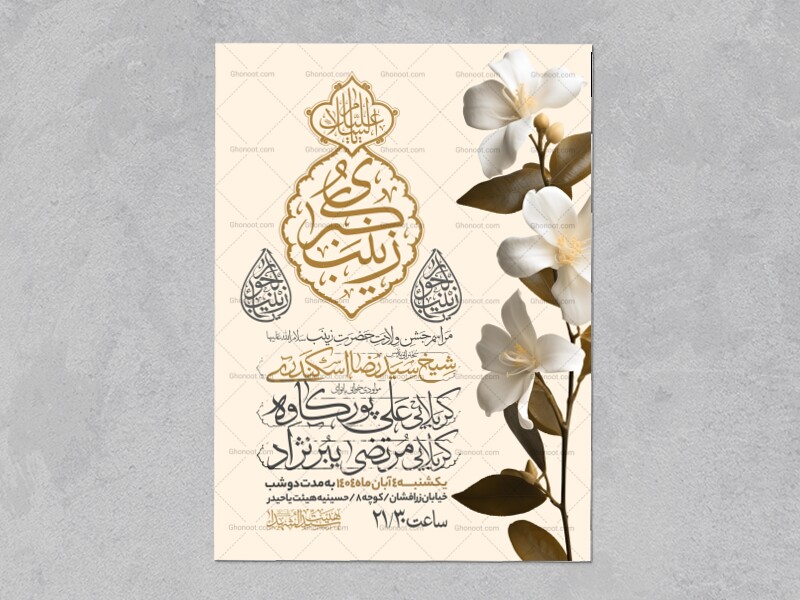 علیها السلام
زینب کبری
یا زینب
یا زینب
مراسم جشن ولادت حضرت زینب سلام الله علیها
سخنرانی
شیخ سیدرضا اسکندری
مولودی خوانی بانوای
کربلائی علی پور کاوه
کربلائی مرتضی یبرنژاد
یکشنبه ۴ آبان ماه ۱۴۰۴ به مدت دو شب
خیابان زرافشان / کوچه ۸ / حسینیه هیئت یاحیدر
ساعت ۲۱/۳۰
هیئت سیدالشهدا
Ghonoot.com